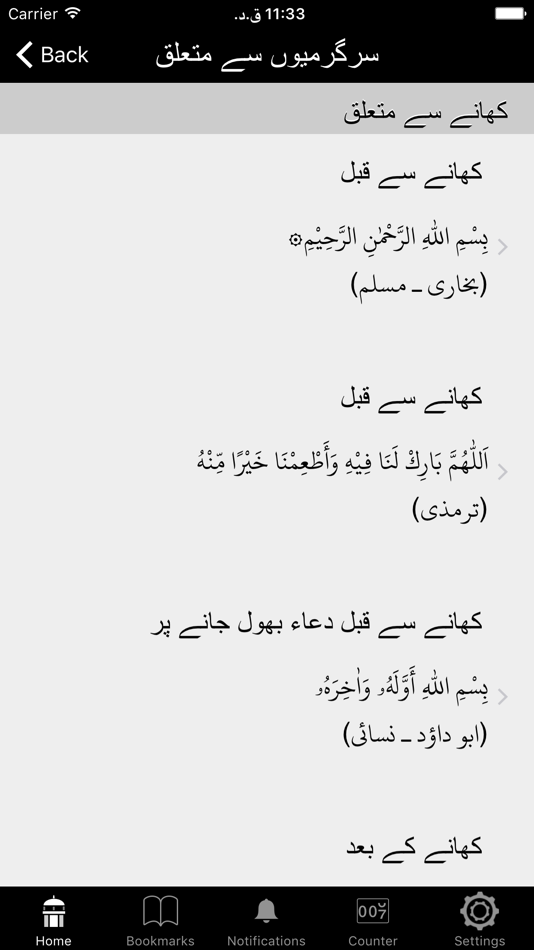 Carrier 11:33 ق.د.
Back سرگرمیوں سے متعلق
کھانے سے متعلق
کھانے سے قبل
بِسْمِ اللهِ الرَّحْمٰنِ الرَّحِيْمِ۞
(بخاری ـ مسلم)
کھانے سے قبل
اَللّٰهُمَّ بَارِكْ لَنَا فِيْهِ وَأَطْعِمْنَا خَيْرًا مِّنْهُ
(ترمذی)
کھانے سے قبل دعاء بھول جانے پر
بِسْمِ اللهِ أَوَّلَهُۥ وَاٰخِرَهُۥ
(ابو داؤد ـ نسائی)
کھانے کے بعد
007
Home Bookmarks Notifications Counter Settings